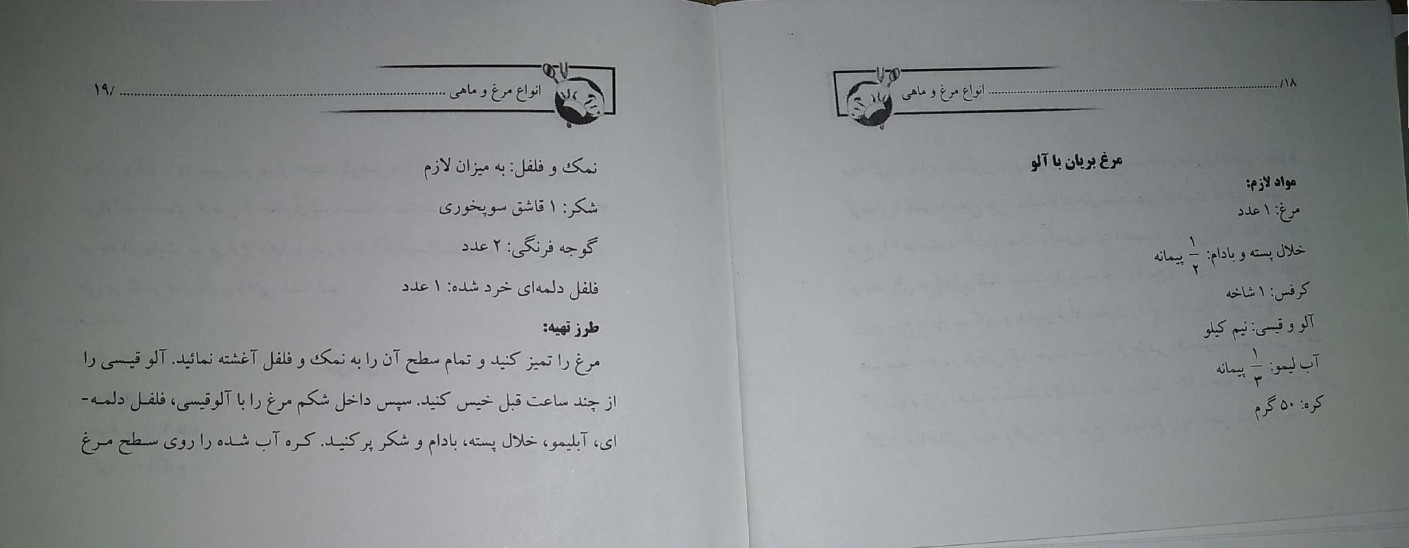 ۱۸/ انواع مرغ و ماهی
مرغ بریان با آلو
مواد لازم:
مرغ: ۱ عدد
خلال پسته و بادام: ۱/۲ پیمانه
کرفس: ۱ شاخه
آلو و قیسی: نیم کیلو
آب لیمو: ۱/۳ پیمانه
کره: ۵۰ گرم
انواع مرغ و ماهی /۱۹
نمک و فلفل: به میزان لازم
شکر: ۱ قاشق سوپخوری
گوجه فرنگی: ۲ عدد
فلفل دلمه‌ای خرد شده: ۱ عدد
طرز تهیه:
مرغ را تمیز کنید و تمام سطح آن را به نمک و فلفل آغشته نمائید. آلو قیسی را
از چند ساعت قبل خیس کنید. سپس داخل شکم مرغ را با آلوقیسی، فلفل دلمه-
ای، آبلیمو، خلال پسته، بادام و شکر پر کنید. کره آب شده را روی سطح مرغ